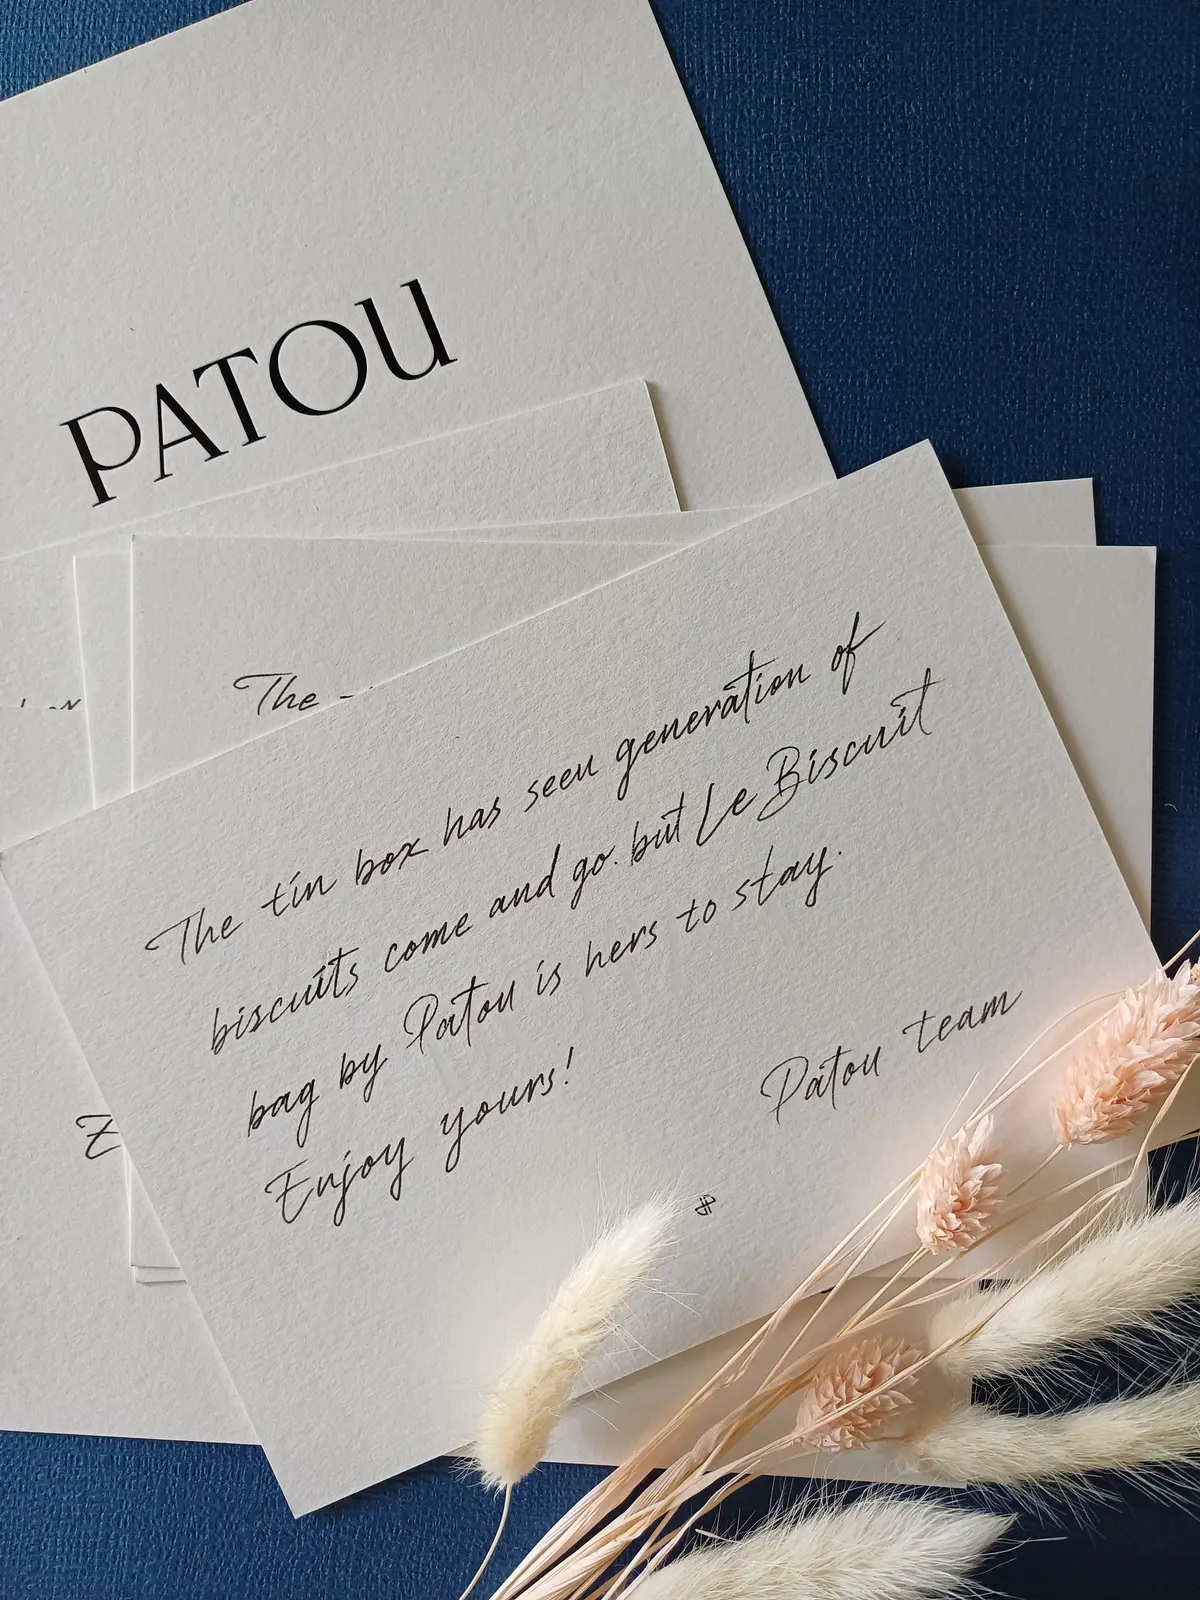 PATOU
The
The tin box has seen generation of
biscuits come and go. but Le Biscuit
bag by Patou is hers to stay.
Enjoy yours!
Patou team